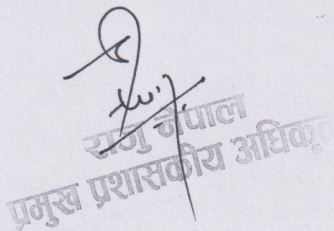 राजु नेपाल
प्रमुख प्रशासकीय अधिकृत